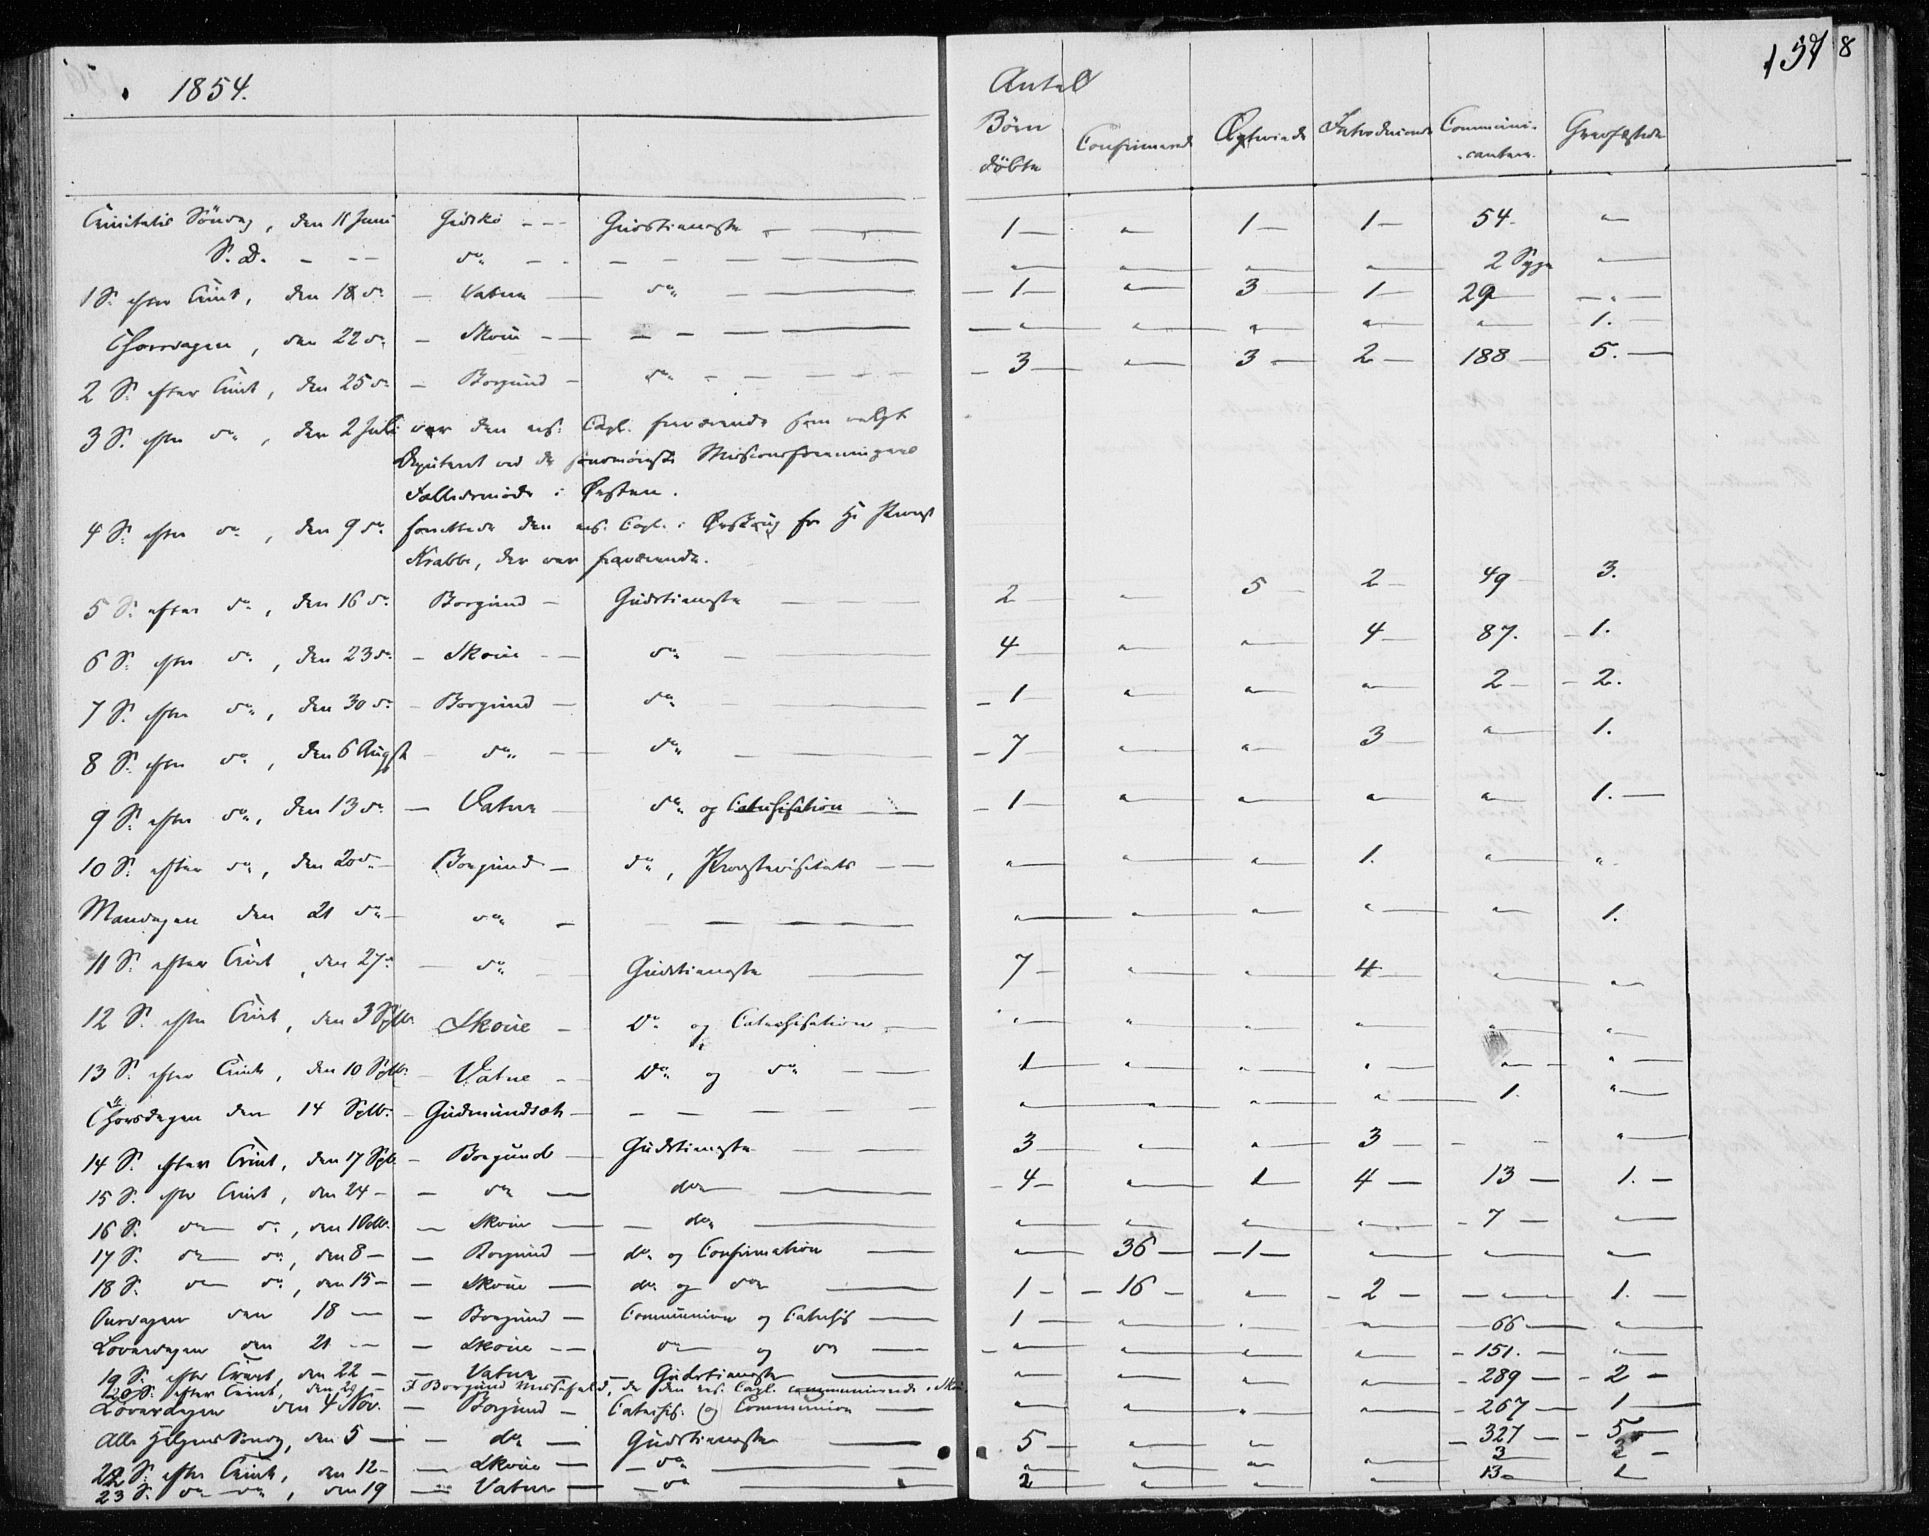 1854.
137 8
Antal
Børn døbte | Confirmerede | Ægteviede | Introducerede | Communicantere | Gravfæstede
Trinitatis Söndag, den 11 Juni | Giskö - - - | Gudstieneste | 1 | " | 1 | 1 | 54 | "
S. D. - - - | do | - - - | " | " | " | " | 2 Syge | "
1 S. efter Trinit, den 18 do | Vatne | do | 1 | " | 3 | 1 | 29 | "
Thorsdagen, den 22 do | Skoue | - - - | " | " | " | " | " | 1.
2 S. efter Trinit, den 25 do | Borgund | do | 3 | " | 3 | 2 | 188 | 5.
3 S. efter do, den 2 Juli var den res. Capl. fraværende som valgt
Deputeret ved de söndmörske Missionsforeningers
Fællesmöde i Örsten.
4 S. efter do, den 9 do forrettede den res. Capl. i Örskoug for Hr Provst
Krabbe, der var fraværende.
5 S. efter do, den 16 do | Borgund | Gudstieneste | 2 | " | 5 | 2 | 49 | 3.
6 S. efter do, den 23 do | Skoue | do | 4 | " | " | 4 | 87. | 1.
7 S. efter do, den 30 do | Borgund | do | 1 | " | " | " | 2 | 2.
8 S. efter do, den 6 August | do | do | 7 | " | " | 3 | " | 1.
9 S. efter do, den 13 do | Vatne | do og Catechisation | 1 | " | " | " | " | 1.
10 S. efter do, den 20 do | Borgund | do, Provstevisitats | " | " | " | 1. | " | "
Mandagen den 21 do | do | - - - | " | " | " | " | " | 1.
11 S. efter Trinit, den 27 do | do | Gudstieneste | 7 | " | " | 4 | " | "
12 S. efter Trinit, den 3 Sptb. | Skoue | Do og Catechisation | " | " | " | " | " | "
13 S. efter Trinit, den 10 Sptb. | Vatne | Do og do | 1 | " | " | " | " | "
Thorsdagen den 14 Sptb. | Gudmundsæt | - - - | " | " | " | " | 1. | "
14 S. efter Trinit, den 17 Spt. | Borgund | Gudstieneste | 3 | " | " | 3 | - | "
15 S. efter Trinit, den 24 | do | do | 4 | " | 1 | 4 | 13 | 1.
16 S. do do, den 1 Octb. | Skoue | do | " | " | " | " | 7 | "
17 S. do do, den 8 | Borgund | do og Confirmation | " | 36 | 1 | " | " | "
18 S. do do, den 15 | Skoue | do og do | 1 | 16 | " | 2 | " | 1.
Onsdagen den 18 | Borgund | Communion og Catechis | 1 | " | " | " | 66 | "
Loverdagen den 21 | Skoue | do og do | " | " | " | " | 151. | "
19 S. efter Trinit, den 22 | Vatne | Gudstieneste | " | " | " | " | 289 | 2
20 S. efter Trinit, den 29 | I Borgund Messefald, da den res. Capl. communicerede i Skoue
Loverdagen den 4 Nov. | Borgund | Catechis. og Communion | " | " | " | " | 267 | 1
Alle Helgens Söndag, den 5 | do | Gudstieneste | 5 | " | " | | 327 | 5
22 S. efter Trinit, den 12 | Skoue | do | " | " | " | " | 3 | 3
23 S. do do, den 19 | Vatne | do | 2 | " | " | " | 13 | 1